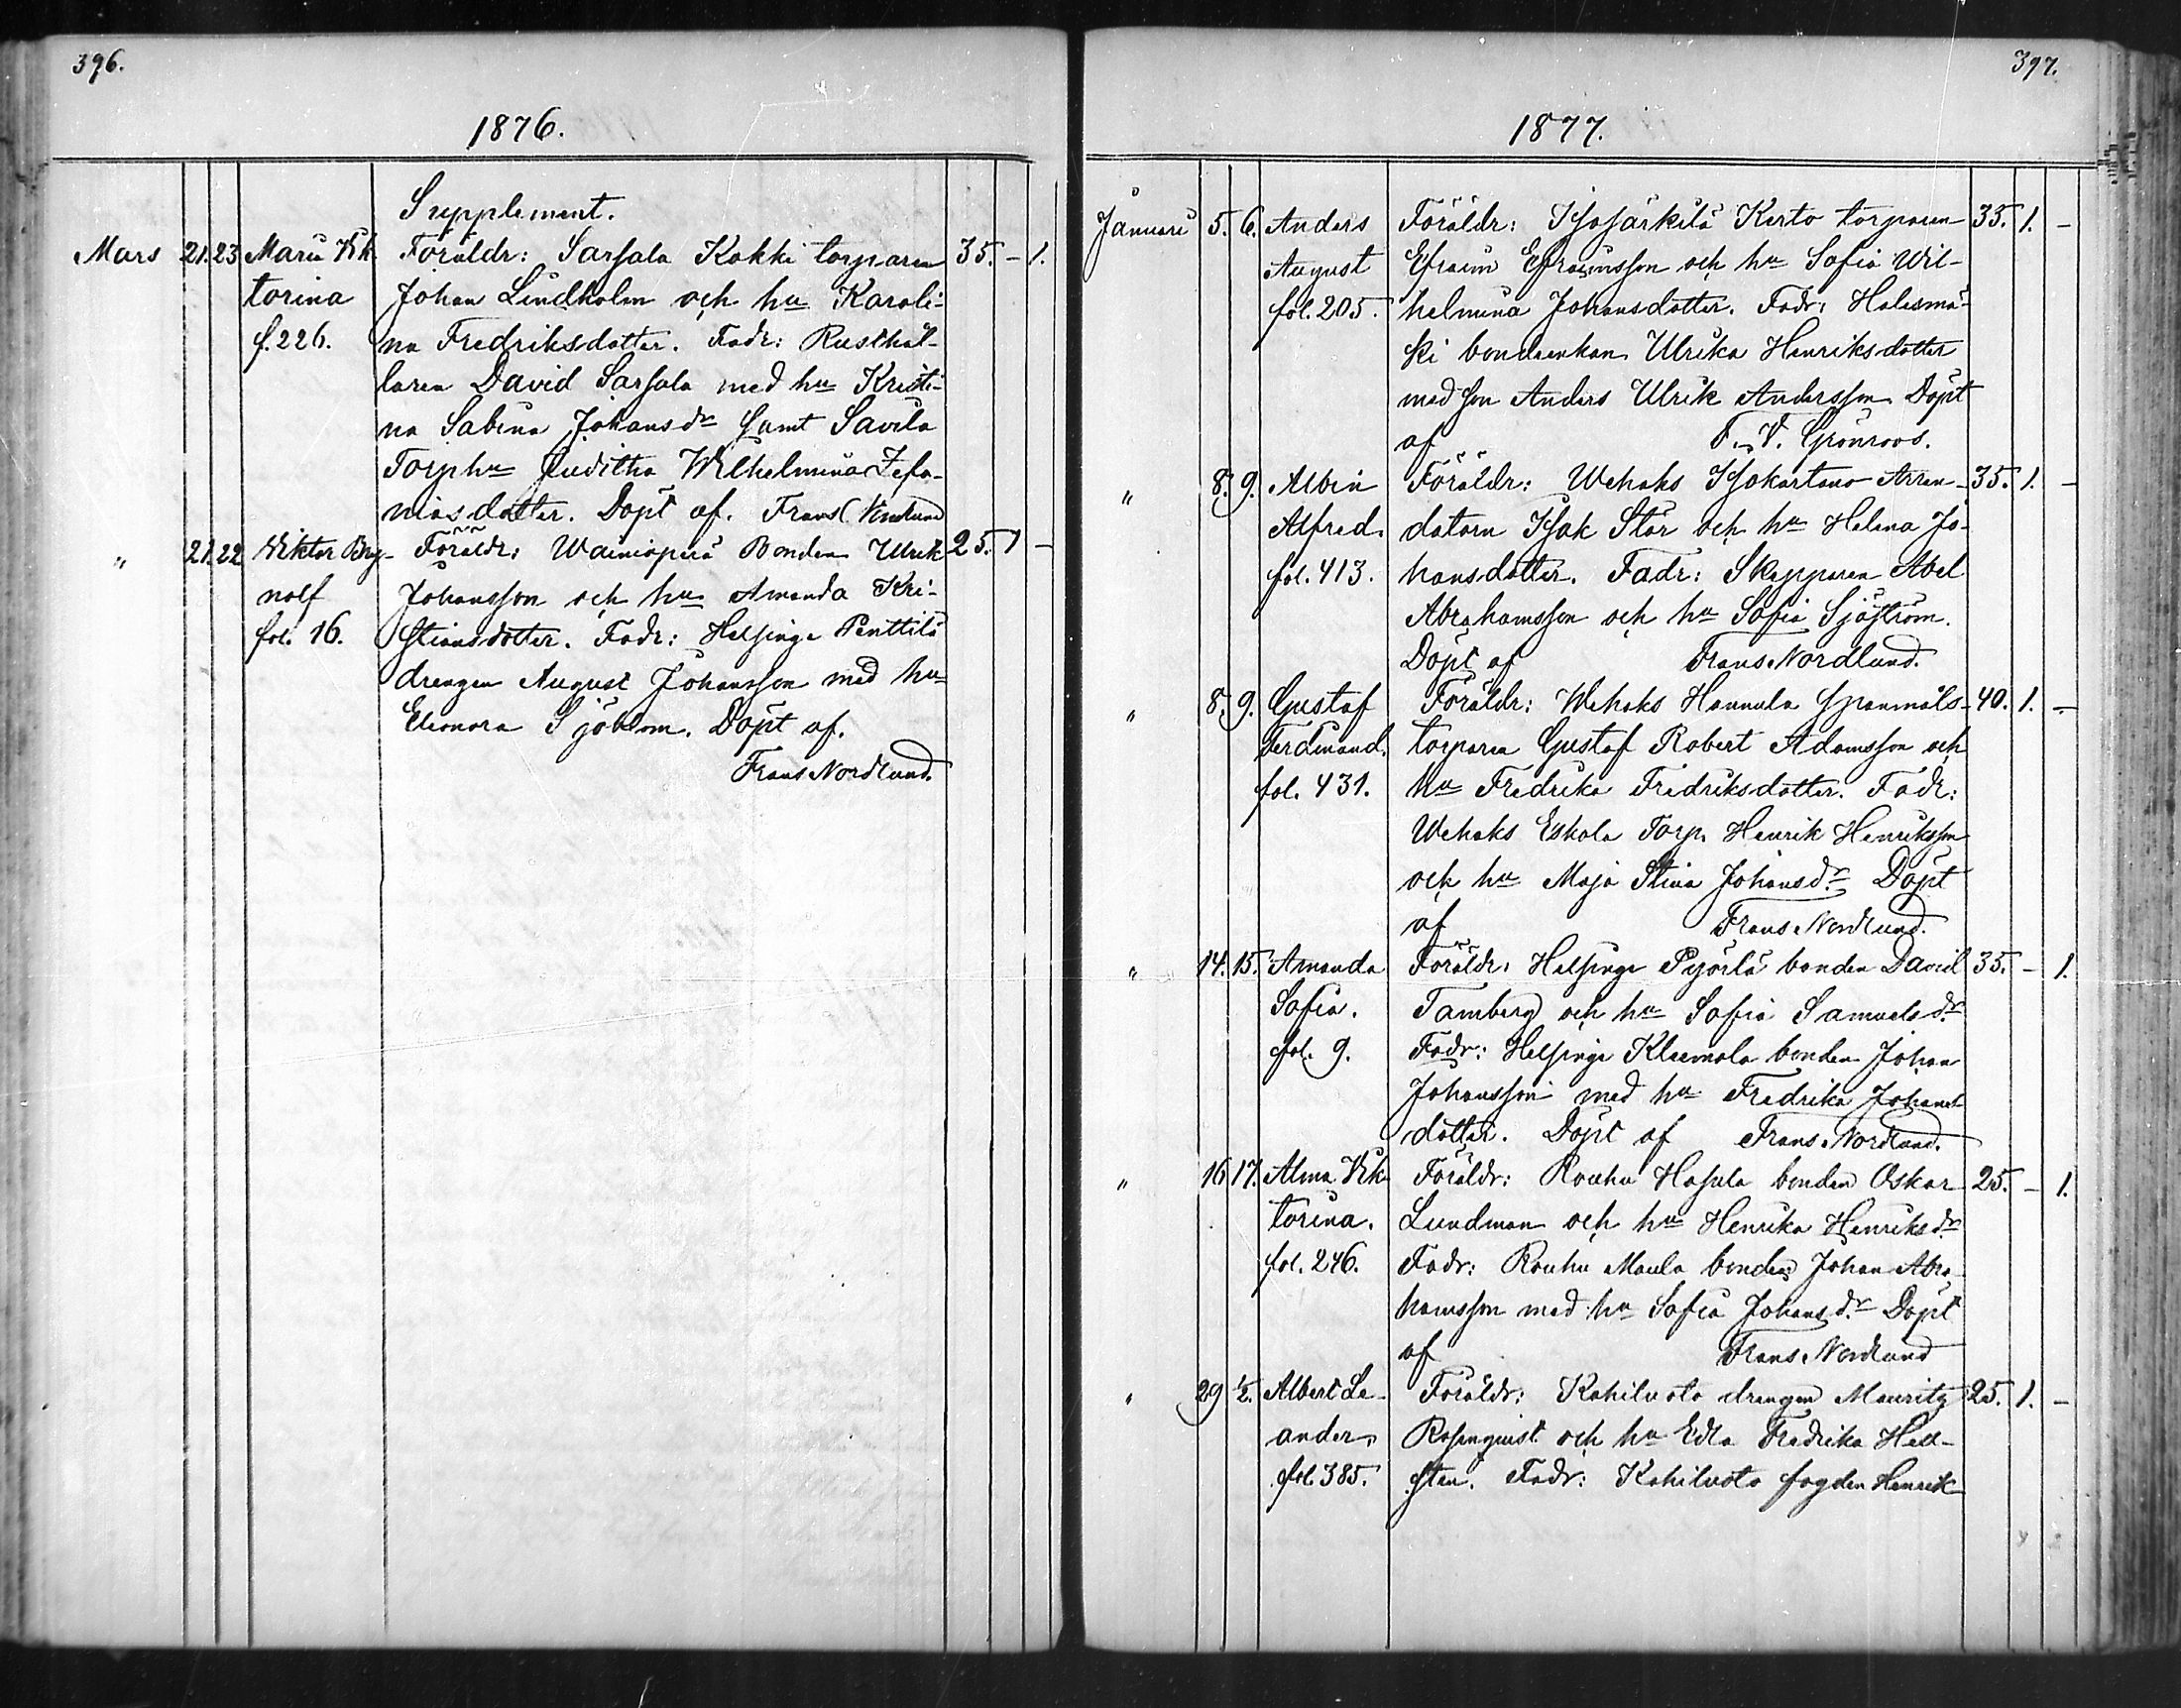 396.
1876.
Supplement.
Mars 21. 23 Maria Vik- Föräldr: Sarsala Kokki torparen 35. – 1.
torina Johan Lindholm och hu Karoli-
f. 226. na Fredriksdotter. Fadr: Rusthål-
laren David Sarsala med hu Kristi-
na Sabina Johansdr samt Savila
Torphu Juditha Wilhelmina Zefa-
niasdotter. Döpt af. Frans Nordlund
" 21. 22 Viktor Bry- Föräldr: Wainiopää Bonden Ulrik 25. 1 –
nolf Johansson och hu Amanda Kri-
fol. 16. stiansdotter. Fadr: Helsinge Penttilä
drengen August Johansson med hu
Eleonora Sjöblom. Döpt af.
Frans Nordlund.
397.
1877.
Januari 5. 6. Anders Föräldr: Isosärkilä Kerto torparen 35. 1. –
August Efraim Efraimsson och hu Sofia Wil-
fol. 205. helmina Johansdotter. Fadr: Halesmä-
ki bondeenkan Ulrika Henriksdotter
med son Anders Ulrik Andersson Döpt
af F. V. Grönroos.
" 8. 9. Albin Föräldr: Wehaks Isokartano Arren- 35. 1. –
Alfred. datorn Isak Stör och hu Helena Jo-
fol. 413. hansdotter. Fadr: Skepparen Abel
Abrahamsson och hu Sofia Sjöström.
Döpt af Frans Nordlund.
" 8. 9. Gustaf Föräldr: Wehaks Hannula spanmåls- 40. 1. –
Ferdinand. torparen Gustaf Robert Adamsson och
fol. 431. hu Fredrika Fredriksdotter. Fadr:
Wehaks Eskola Torp. Henrik Henriksson
och hu Maja Stina Johansdr Döpt
af Frans Nordlund.
" 14. 15. Amanda Föräldr: Helsinge Pyörlä bonden David 35. – 1.
Sofia. Tamberg och hu Sofia Samuelsdr
fol. 9. Fadr: Helsinge Kleemola bonden Johan
Johansson med hu Fredrika Johans-
dotter. Döpt af Frans Nordlund.
" 16 17. Alma Vik- Föräldr: Rouhu Hasula bonden Oskar 25. – 1.
torina. Lundman och hu Henrika Henriksdr
fol. 246. Fadr: Rouhu Maula bonden Johan Abra-
hamsson med hu Sofia Johansdr Döpt
af Frans Nordlund
" 29 1/2. Albert Le- Föräldr: Kahiluoto drengen Mauritz 25. 1. –
ander. Rosenquist och hu Edla Fredrika Hell-
fol. 385. sten. Fadr: Kahiluoto fogden Henrik